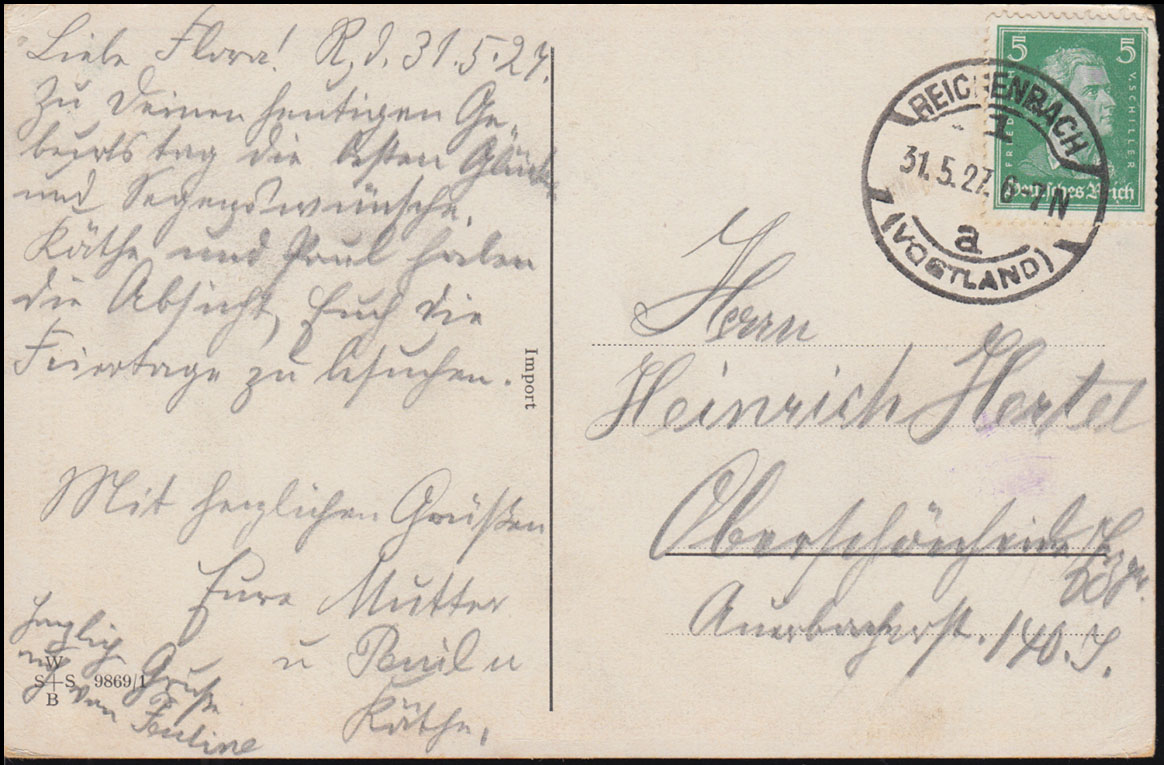 Liebe Flora! R, d. 31.5.27.
Zu Deinen heutigen Ge-
burtstag die besten Glück
und Segenswünsche.
Käthe und Paul haben
die Absicht, Euch die
Feiertage zu besuchen.
Mit herzlichen Grüßen
Eure Mutter
u Paul u
Käthe.
Herzlich
Grüße
von Pauline
W
S S 9869/1
B
Import
5 5
FRIED V. SCHILLER
Deutsches Reich
REICHENBACH
1
31.5.27. 6-7N
a
(VOGTLAND)
Herrn
Heinrich Hertel
Auerbacherst. 140. I.